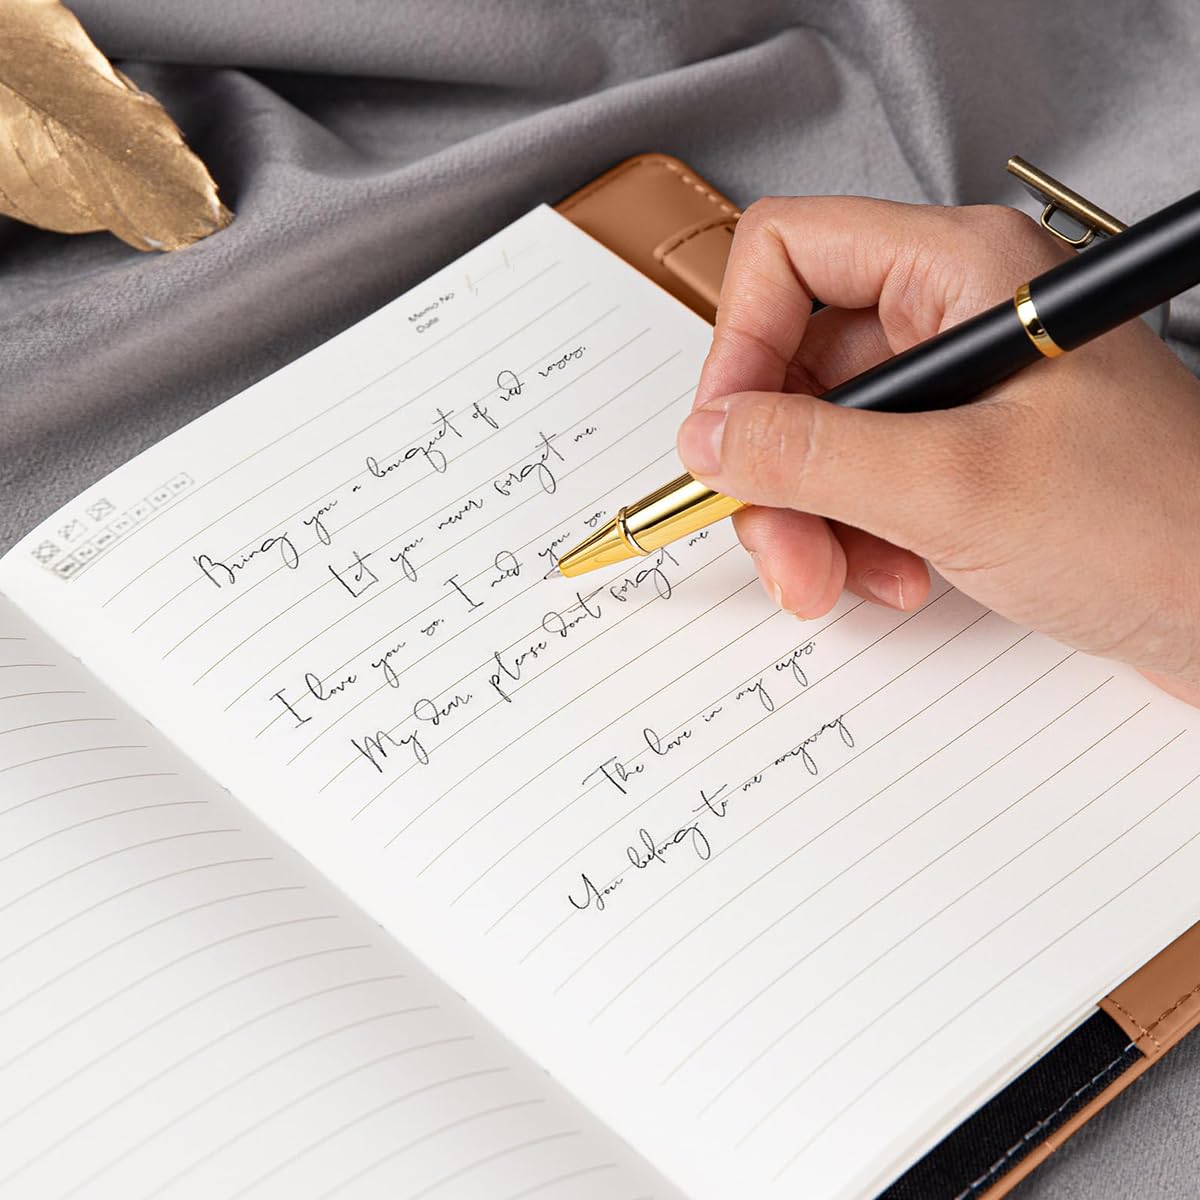 Memo No
Date
Bring you a bouquet of red roses.
Let you never forget me.
I love you so. I need you so.
My dear, please don't forget me
The love in my eyes.
You belong to me anyway